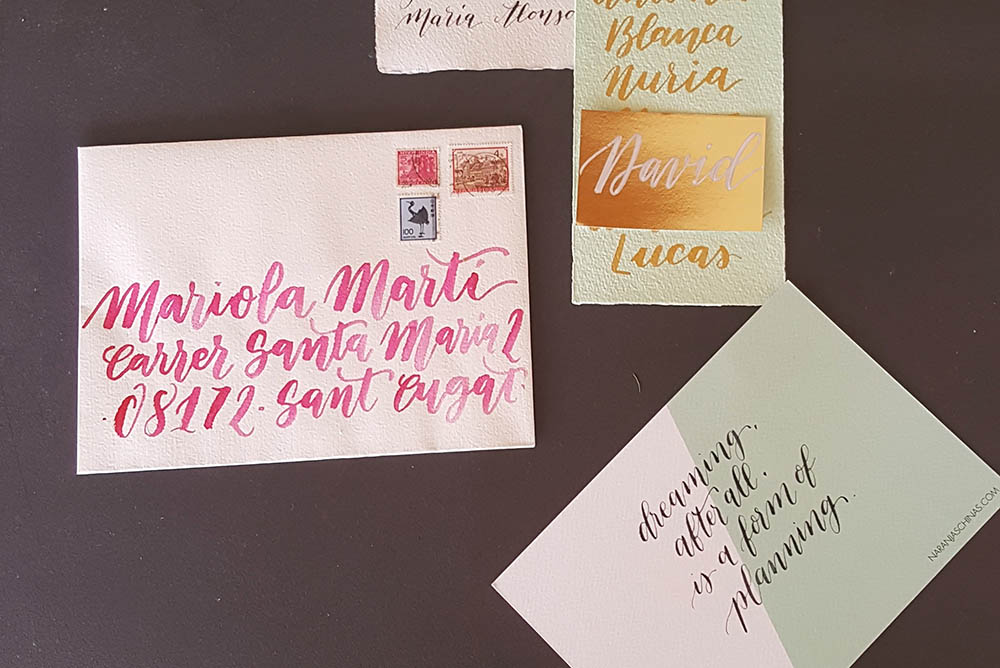 Maria Alonso
Blanca
Nuria
David
Lucas
4
100
Mariola Martí
Carrer Santa María 2
·08172· Sant Cugat·
dreaming,
after all,
is a form of
planning.
NARANJASCHINAS.COM